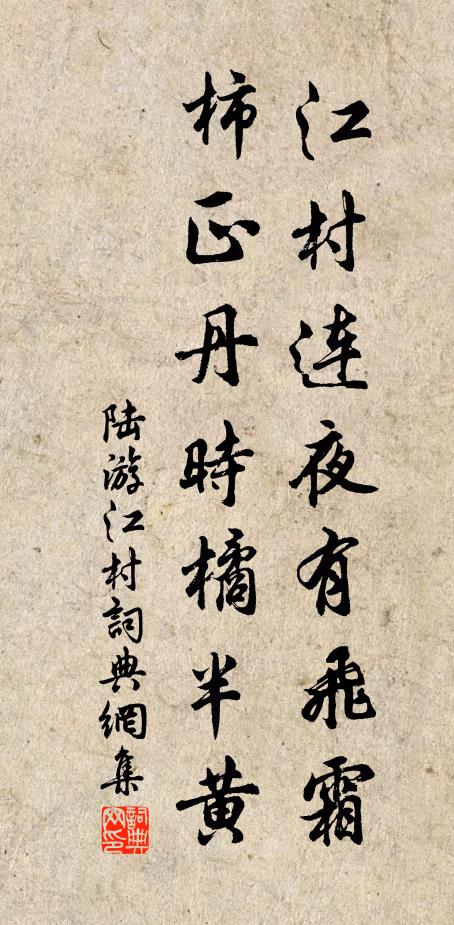 江村連夜有飛霜
柿正丹時橘半黄
陆游江村詞典網集
詞典網印